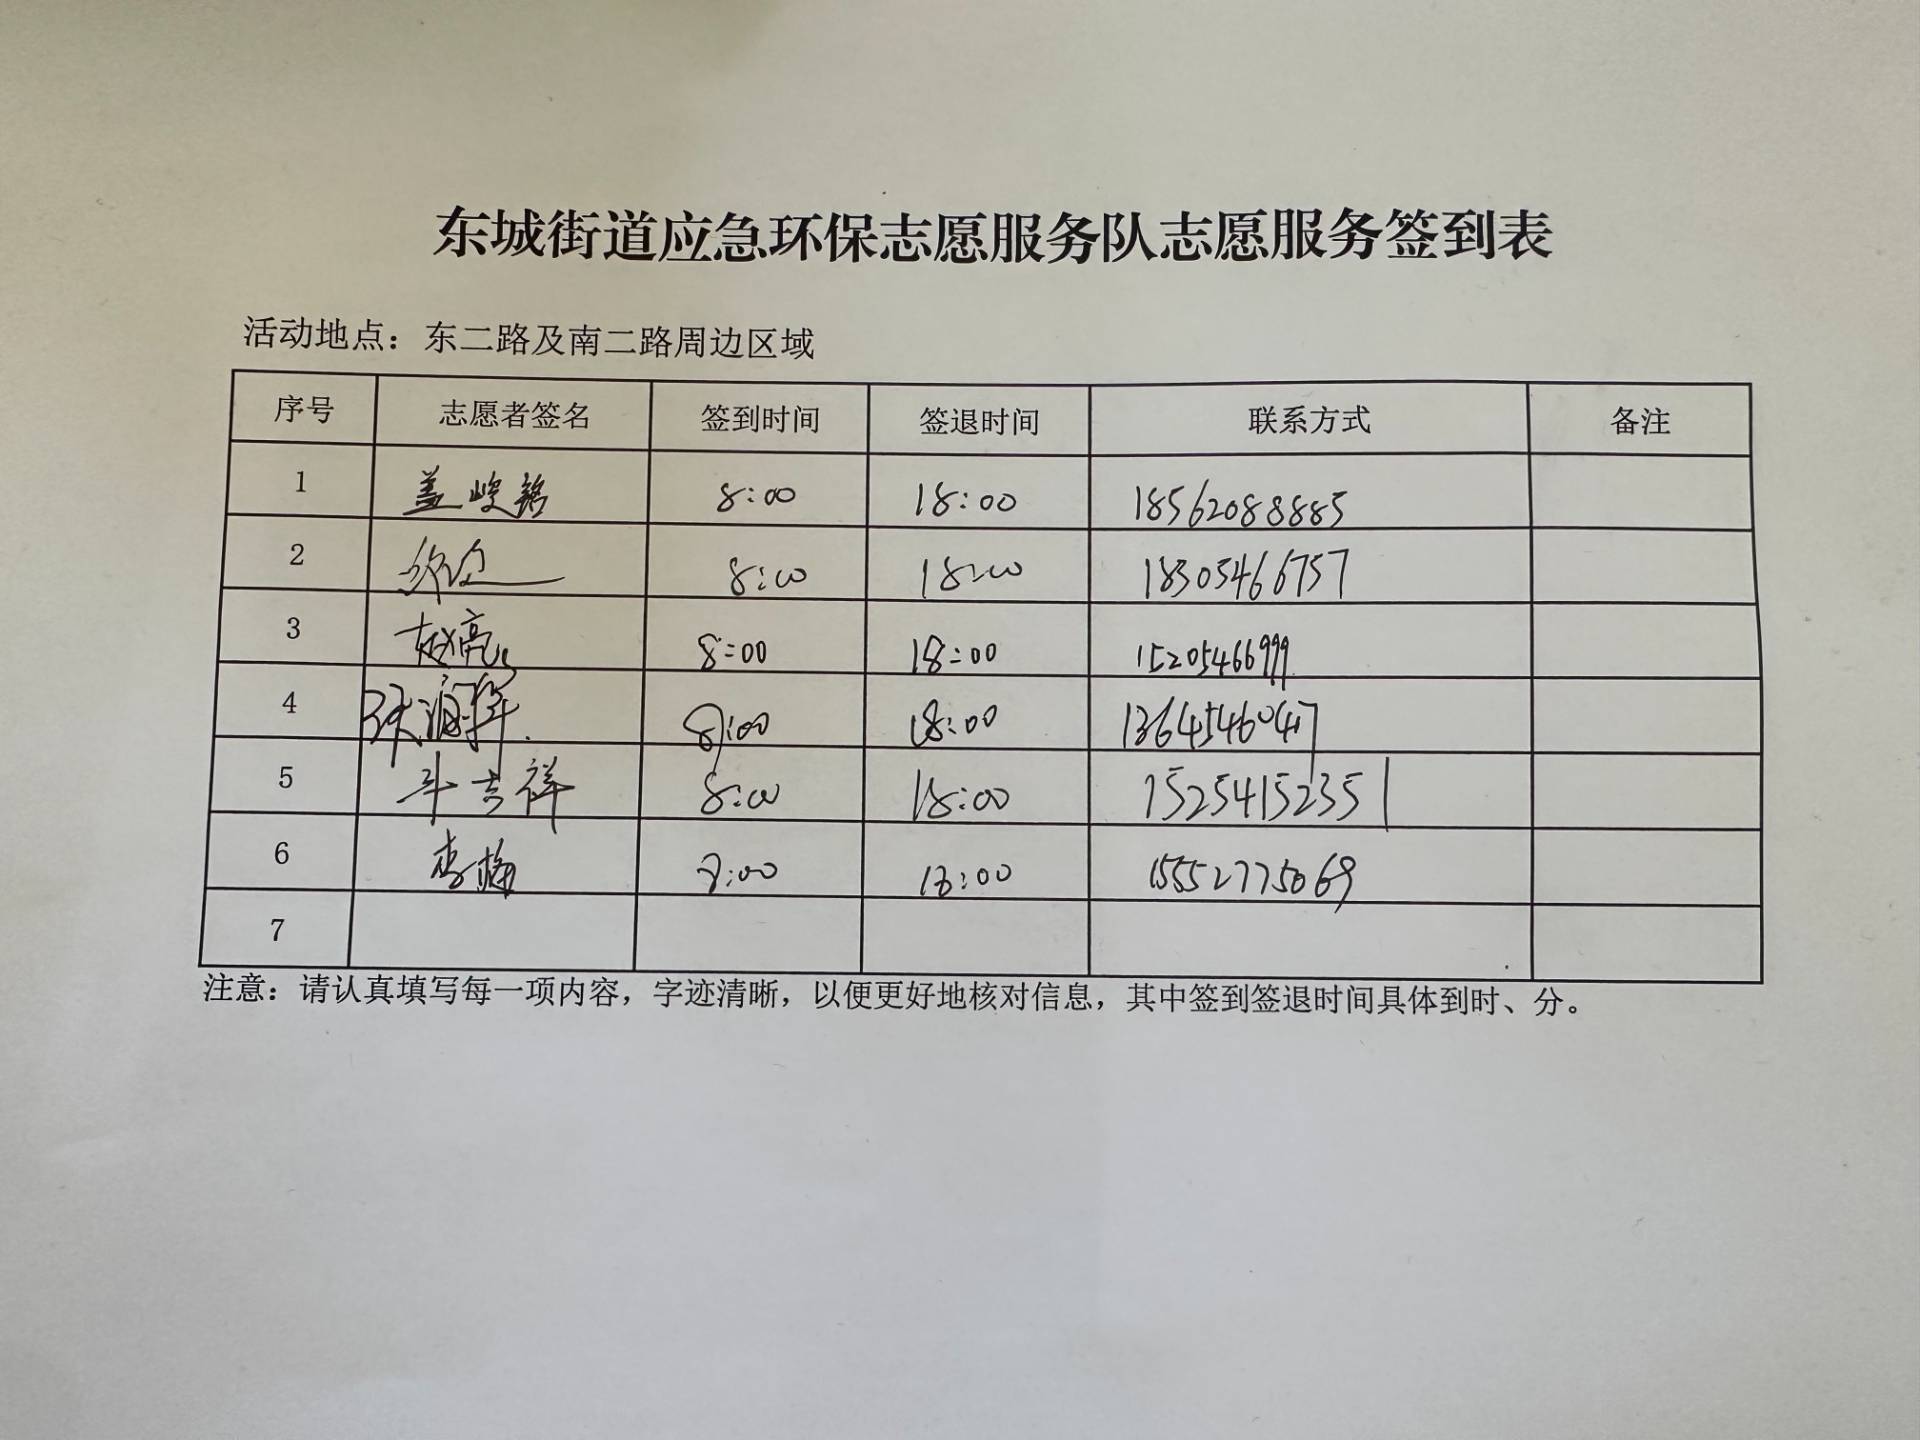 东城街道应急环保志愿服务队志愿服务签到表
活动地点：东二路及南二路周边区域
序号 志愿者签名 签到时间 签退时间 联系方式 备注
1 盖峻铭 8:00 18:00 18562088885
2 8:00 18:00 18305466757
3 赵亮 8:00 18:00 15205466999
4 8:00 18:00 13645460417
5 斗吉祥 8:00 18:00 15254152351
6 李梅 8:00 18:00 15552775069
7
注意：请认真填写每一项内容，字迹清晰，以便更好地核对信息，其中签到签退时间具体到时、分。